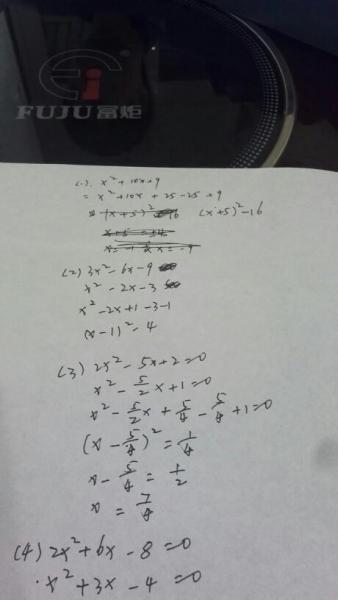 FUJU富炬
(1). x² + 10x + 9
= x² + 10x + 25 - 25 + 9
(x+5)² - 16 (x+5)² - 16
x+5 = ±4
x = -1 x = -9
(2) 3x² - 6x - 9
x² - 2x - 3
x² - 2x + 1 - 3 - 1
(x - 1)² - 4
(3) 2x² - 5x + 2 = 0
x² - 5/2 x + 1 = 0
x² - 5/2 x + 5/4 - 5/4 + 1 = 0
(x - 5/4)² = 1/4
x - 5/4 = 1/2
x = 7/4
(4) 2x² + 6x - 8 = 0
x² + 3x - 4 = 0